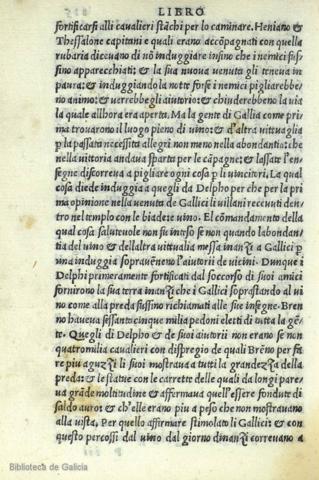 LIBRO
fortificarsi alli cavalieri stãchi per lo caminare. Heniano &
Thessalone capitani e quali erano accõpagnati con quella
rubaria dicevano di nõ induggiare insino che i nemici fus-
sino apparecchiati; & la sua nuova venuta gli teneva in
paura: & induggiando la notte forse i nemici pigliarebbe-
no animo: & verrebbegli aiutorio: & chiuderebbeno la via
la quale allhora era aperta. Ma la gente di Gallia come pri-
ma trovarono il luogo pieno di vino: & d'altra vittuaglia
p la passata necessita allegri non meno nella abondantia: che
nella vittoria andava sparta per le cãpagne: & lassate l'en-
segne discorreva a pigliare ogni cosa p li vincitori. La qual
cosa diede induggia a quegli da Delpho per che per la pri
ma opinione nella venuta de Gallici li villani recevuti den-
tro nel tempio con le biade: & vino. El cõmandamento della
qual cosa salutevole non fu inteso se non quando labondan-
tia del vino & dellaltra vittualia messa inanzi a Gallici p
una induggia sopravẽneno l'aiutorii de vicini. Dunque i
Delphi primeramente fortificati dal soccorso di suoi amici
fornirono la sua terra inanzi che i Gallici soprastando al vi
no come alla preda fussino richiamati alle sue insegne. Bren
no haueva sessanta cinque milia pedoni electi di tutta la gẽ-
te. Quegli di Delpho & de suoi aiutorii non erano se non
quatromilia cavalieri con dispregio de quali Brẽno per fa-
re piu aguzzi li suoi mostrava a tutti la grandezza della
preda: & le statue con le carrette delle quali da longi pare-
va grãde moltitudine & affermava quell'essere fondute di
saldo auro: & ch'elle erano piu a peso che non mostravano
alla vista. Per quello affirmare stimolati li Gallici & con
questo percossi dal vino dal giorno dinanzi correvano a
Biblioteca de Galicia